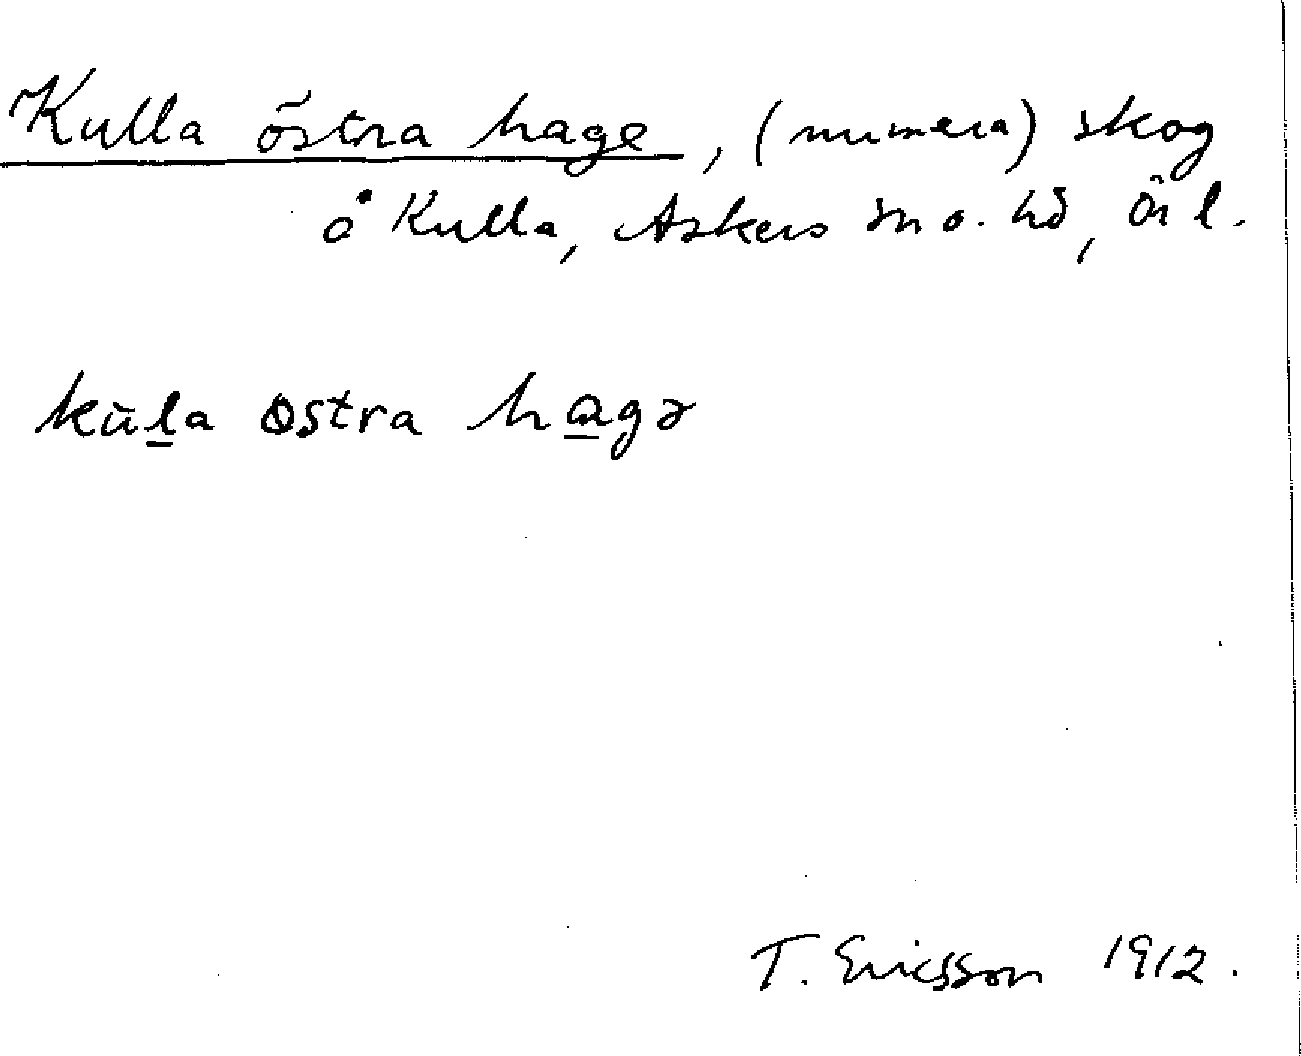 Kulla östra hage, (numera) skog
å Kulla, Askers sn o. hd, Ör l.
kùl̲a östra ha̲gə
T. Ericsson 1912.